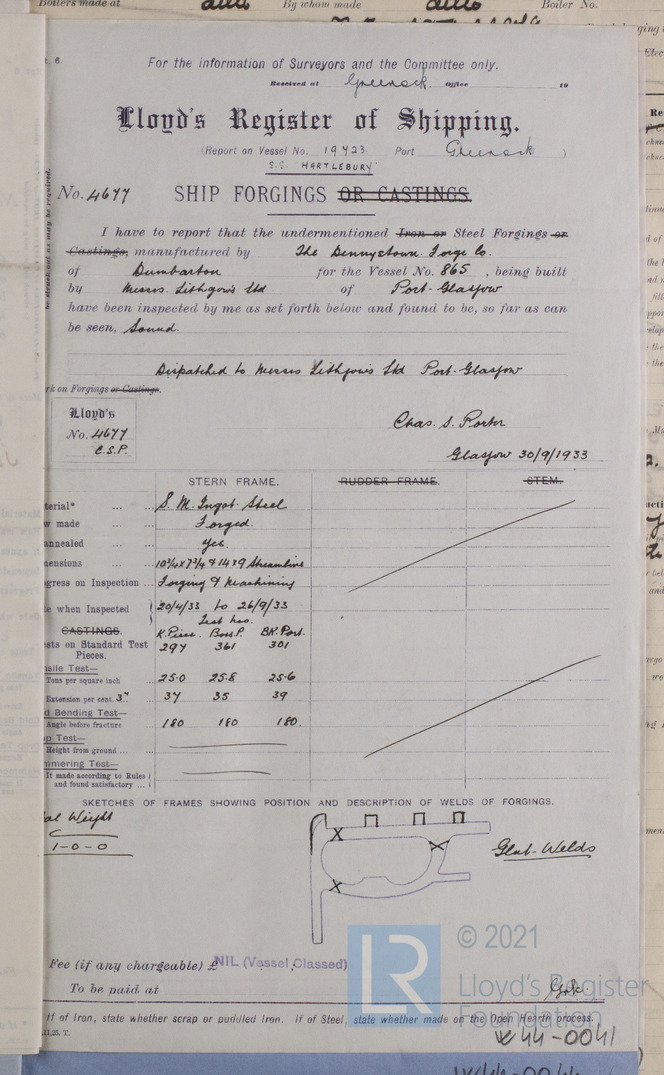 Boilers made at ditto By whom made ditto Boiler No.
For the information of Surveyors and the Committee only.
Received at Greenock. Office 19
Lloyd's Register of Shipping.
(Report on Vessel No. 19423 Port Greenock )
S.S. HARTLEBURY
No. 4677 SHIP FORGINGS OR CASTINGS.
I have to report that the undermentioned Iron or Steel Forgings or
Castings, manufactured by The Dennystown Forge Co.
of Dumbarton for the Vessel No. 865 , being built
by Messrs Lithgows Ltd of Port-Glasgow
have been inspected by me as set forth below and found to be, so far as can
be seen, Sound.
Dispatched to Messrs Lithgows Ltd Port-Glasgow
rk on Forgings or Castings.
Lloyd's
No. 4677
C.S.P.
Chas. S. Porter
Glasgow 30/9/1933
STERN FRAME. RUDDER FRAME. STEM.
terial* ... ... S. M. Ingot Steel
w made ... ... Forged.
annealed ... ... Yes.
ensions ... ... 10¾x7¾ & 14x9 Streamline
gress on Inspection ... Forging & Machining
e when Inspected 20/4/33 to 26/9/33
Test Nos.
CASTINGS. K.Piece. Boss.P. BK.Post.
sts on Standard Test Pieces. 297 361 301
sile Test—
Tons per square inch ... 25.0 25.8 25.6
Extension per cent. 3" ... 37 35 39
d Bending Test—
Angle before fracture ... 180 180 180.
p Test—
Height from ground ... ...
mmering Test—
If made according to Rules
and found satisfactory ...
SKETCHES OF FRAMES SHOWING POSITION AND DESCRIPTION OF WELDS OF FORGINGS.
al Weight
1-0-0
Glut-Welds
Fee (if any chargeable) £ NIL (Vessel Classed)
To be paid at Grk.
If of Iron, state whether scrap or puddled Iron. if of Steel, state whether made on the Open Hearth process.
.11.25. T.
LR
© 2021
Lloyd's Register
Foundation
W44-0041